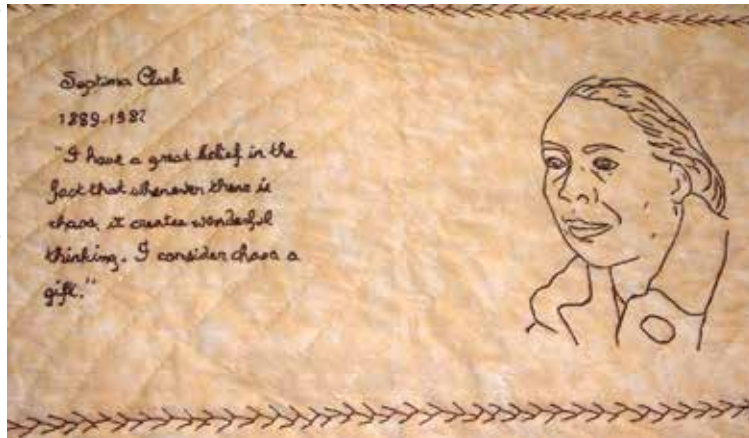 Septima Clark
1889-1987
"I have a great belief in the
fact that whenever there is
chaos, it creates wonderful
thinking. I consider chaos a
gift."